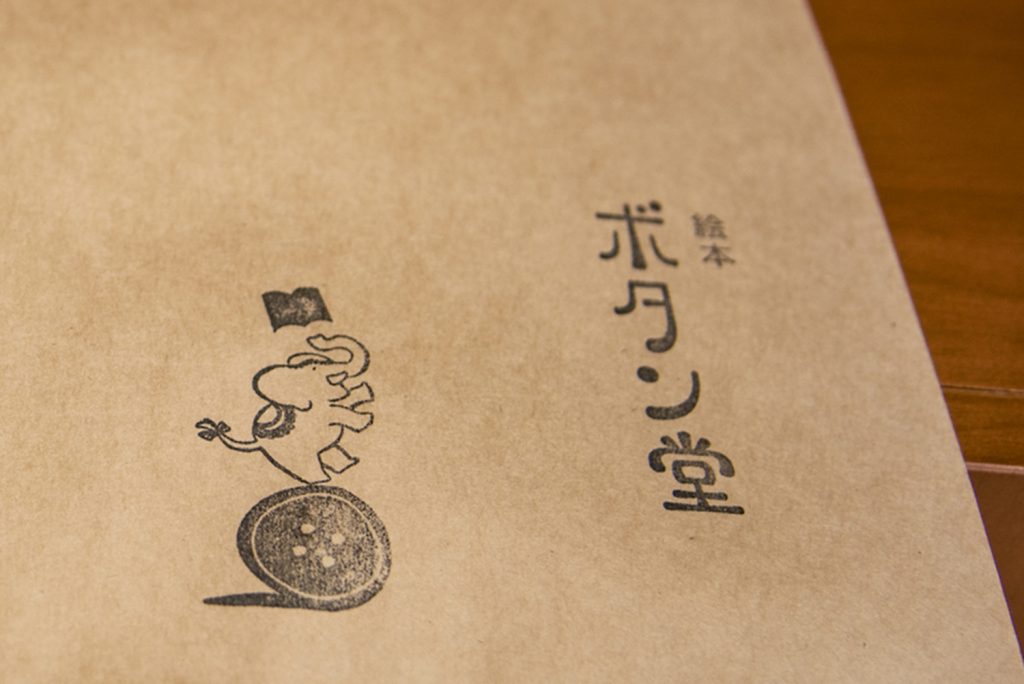 絵本
ボタン堂